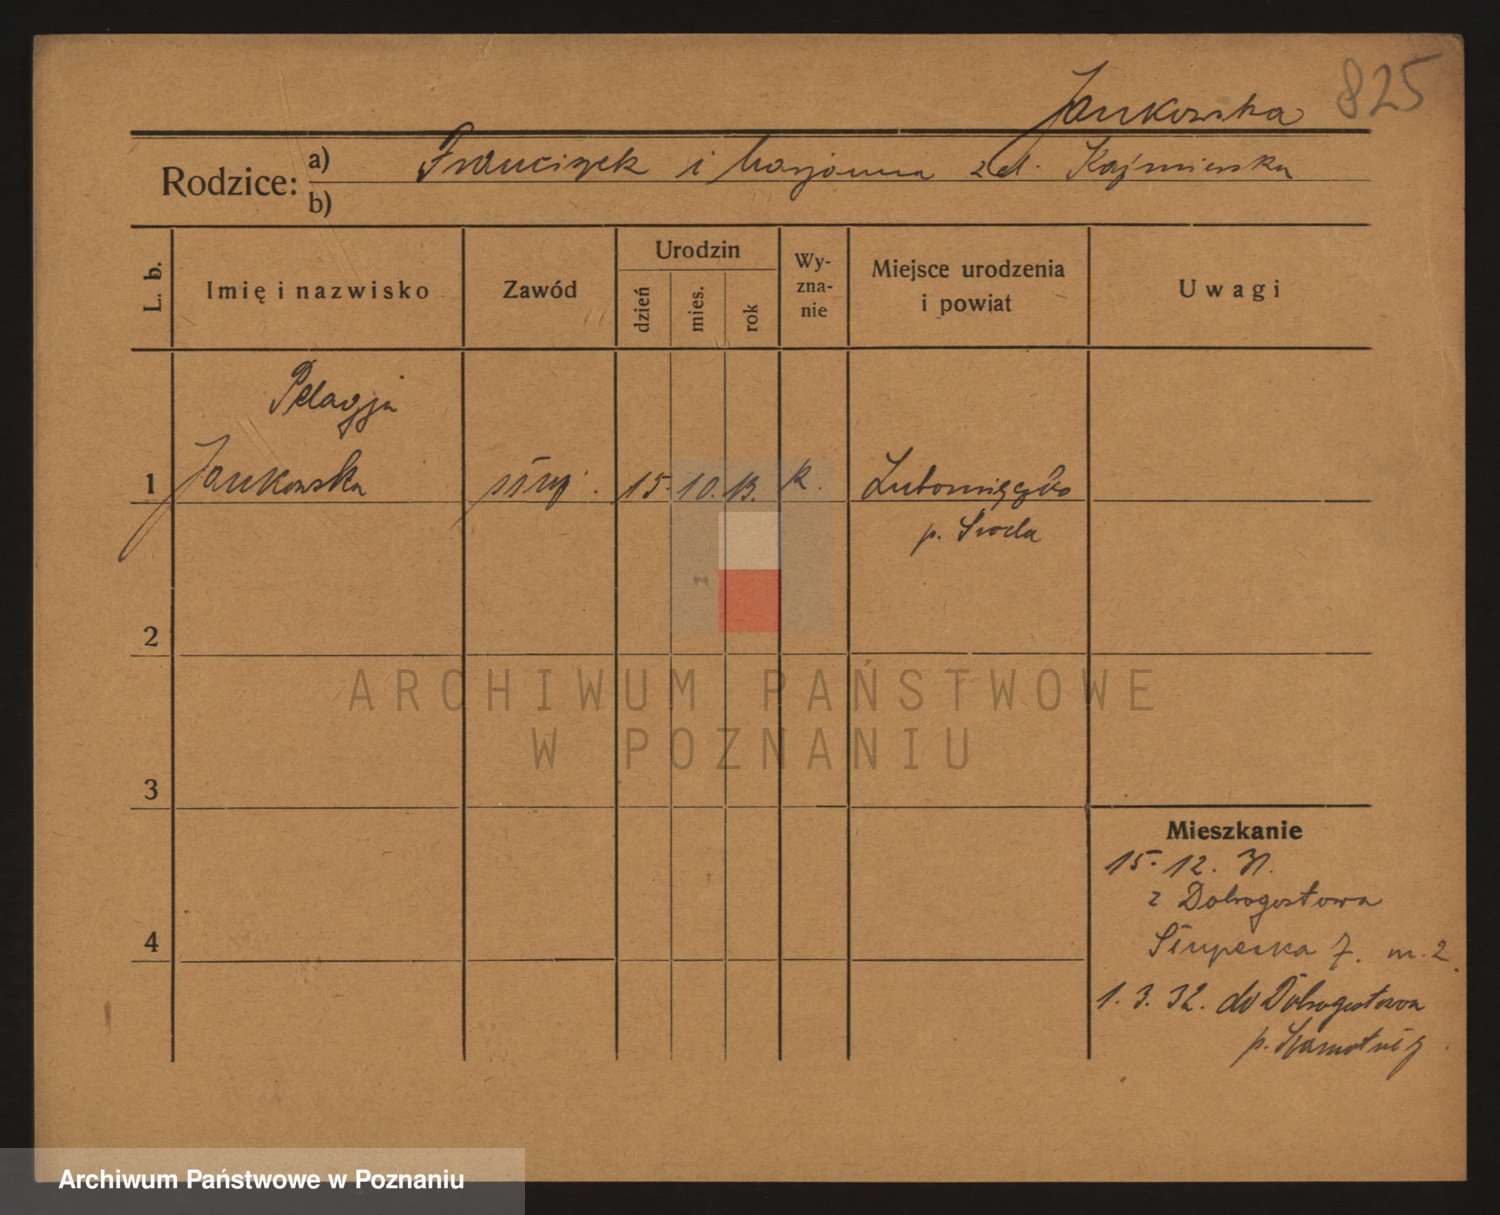 825
Jankowska
Rodzice:
a) Franciszek i Marjanna zd. Kaźmierska
b)
L. b.
Imię i nazwisko
Zawód
Urodzin
dzień
mies.
rok
Wy-
zna-
nie
Miejsce urodzenia
i powiat
Uwagi
Pelagja
1 Jankowska 15. 10. 13. k.
p. Środa
2
3
4
Mieszkanie
15. 12. 31.
z Dobrogostowa
7. m. 2.
1. 3. 32. do Dobrogostowa
p. Szamotuły
ARCHIWUM PAŃSTWOWE
W POZNANIU
Archiwum Państwowe w Poznaniu